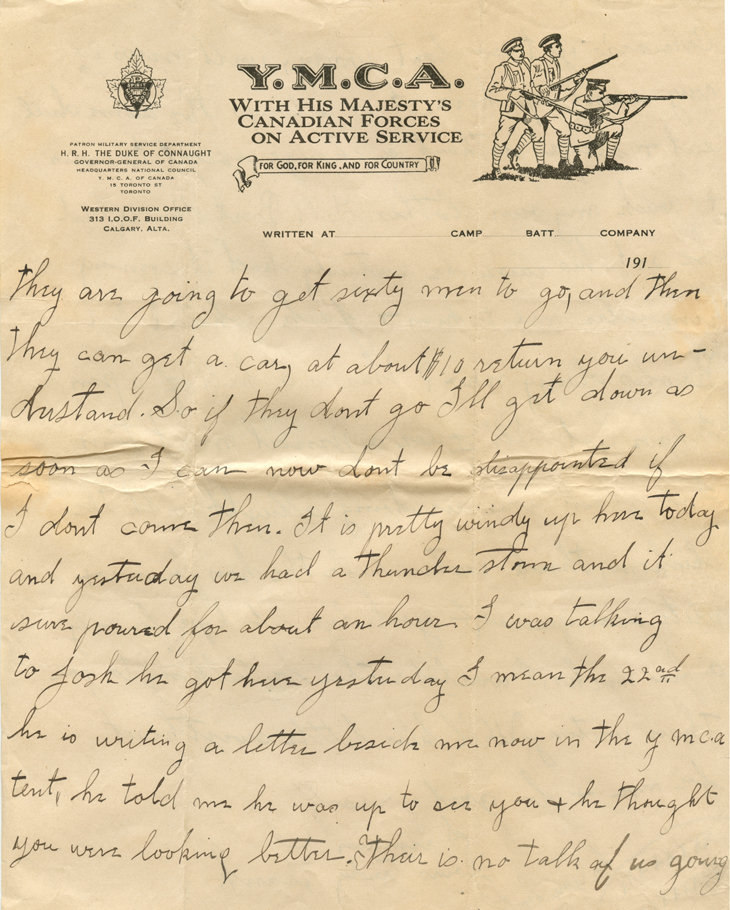 Y.M.C.A.
WITH HIS MAJESTY'S
CANADIAN FORCES
ON ACTIVE SERVICE
FOR GOD, FOR KING, AND FOR COUNTRY
PATRON MILITARY SERVICE DEPARTMENT
H. R. H. THE DUKE OF CONNAUGHT
GOVERNOR-GENERAL OF CANADA
HEADQUARTERS NATIONAL COUNCIL
Y. M. C. A. OF CANADA
15 TORONTO ST
TORONTO
WESTERN DIVISION OFFICE
313 I.O.O.F. BUILDING
CALGARY, ALTA.
WRITTEN AT CAMP BATT. COMPANY
191
they are going to get sixty men to go, and then
they can get a car, at about $10 return you un-
derstand. So if they dont go I'll get down as
soon as I can now dont be disappointed if
I dont come then. It is pretty windy up here today
and yesterday we had a thunder storm and it
sure poured for about an hour. I was talking
to Josh he got here yesterday I mean the 22nd
he is writing a letter beside me now in the y mca
tent, he told me he was up to see you + he thought
you were looking better. Their is no talk of us going